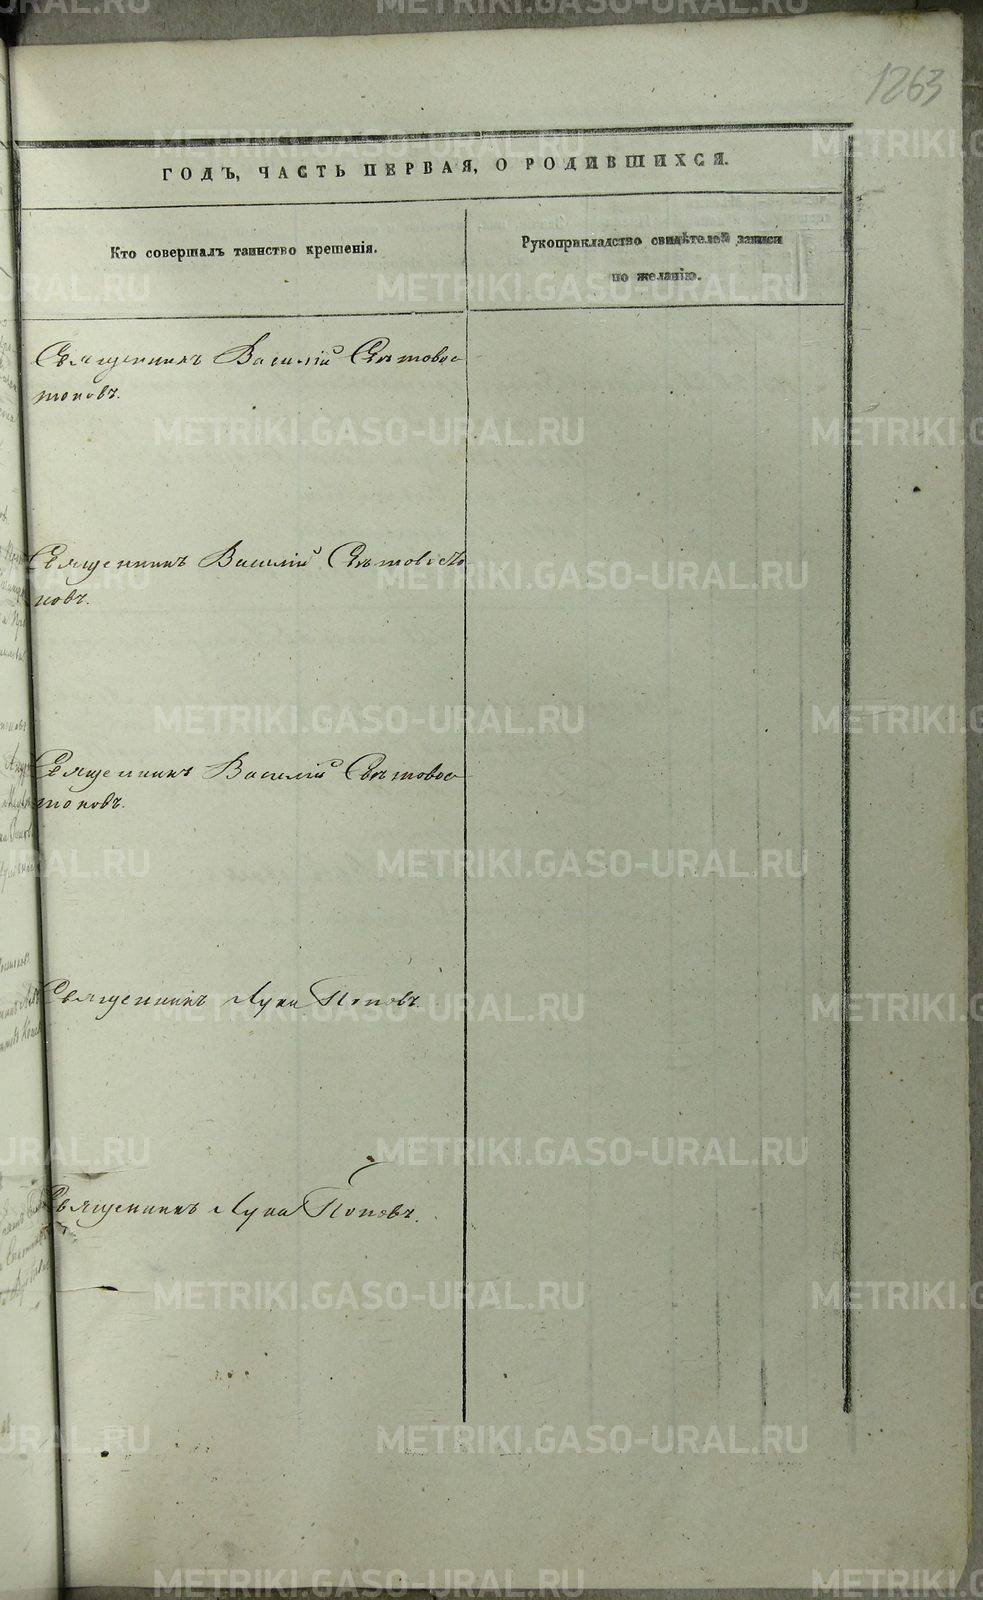 1263
ГОДЪ, ЧАСТЬ ПЕРВАЯ, О РОДИВШИХСЯ.
Кто совершалъ таинство крещенія.
Рукоприкладство свидѣтелей записи
по желанію.
Священникъ Василій Свѣтовос-
токовъ.
Священникъ Василій Свѣтовосто
ковъ.
Священникъ Василій Свѣтовос-
токовъ.
Священникъ Лука Поповъ.
Священникъ Лука Поповъ.
METRIKI.GASO-URAL.RU